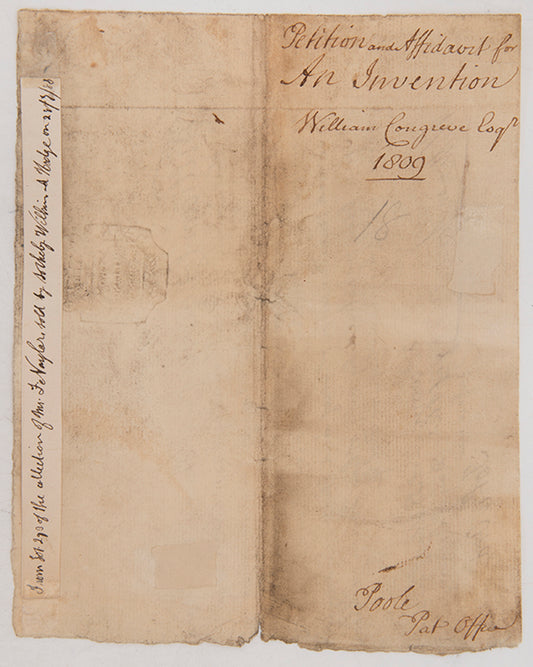 Petition and Affidavit for
An Invention
William Congreve Esqr
1809
18
Poole
Pat Office
From Lot 293 of the collection of Mr. F. Naylor, sold by Sotheby Wilkinson & Hodge on